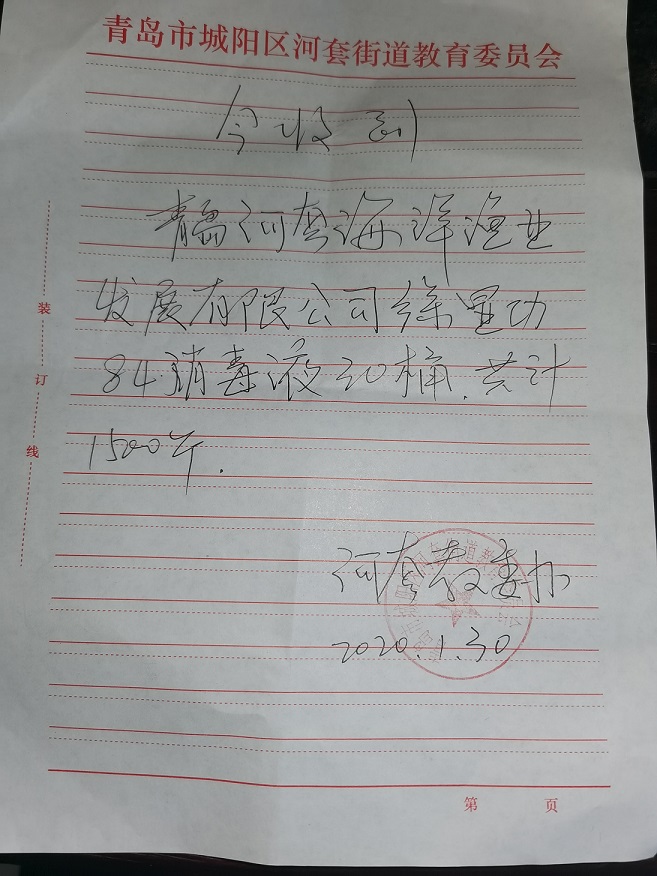 青岛市城阳区河套街道教育委员会
今收到
青岛河套海洋渔业
发展有限公司徐显功
84消毒液30桶.共计
1500斤.
河套教委办
2020.1.30
装
订
线
第 页